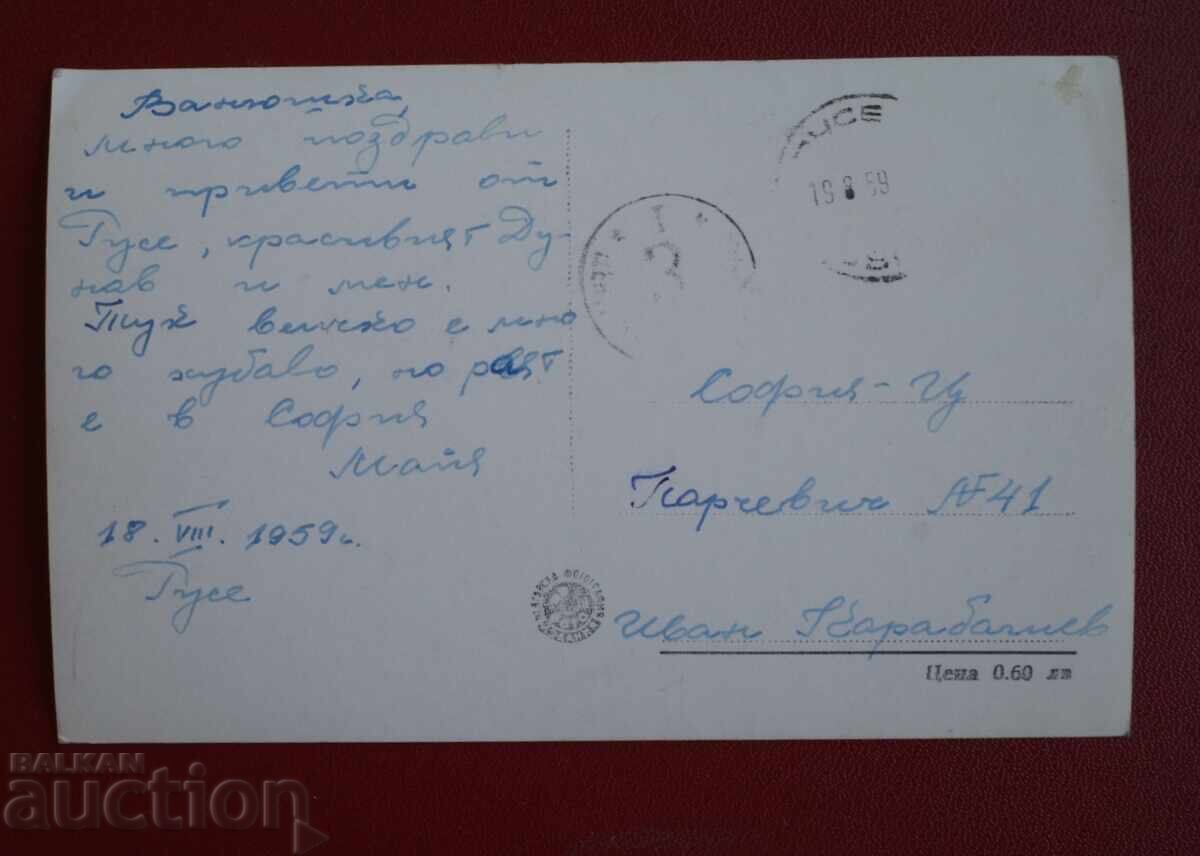 Ванюшка,
много поздрави
и привети от
Русе, красивият Ду-
нав и мен.
Тук всичко е мно
го хубаво, но раят
е в София
Майя
18. VIII. 1959г.
Русе
РУСЕ
19 8 59
София - Ц
Парчевич № 41
Иван Карабаглиев
Цена 0.60 лв
БЪЛГАРСКА ФОТОГРАФИЯ
BALKAN
auction